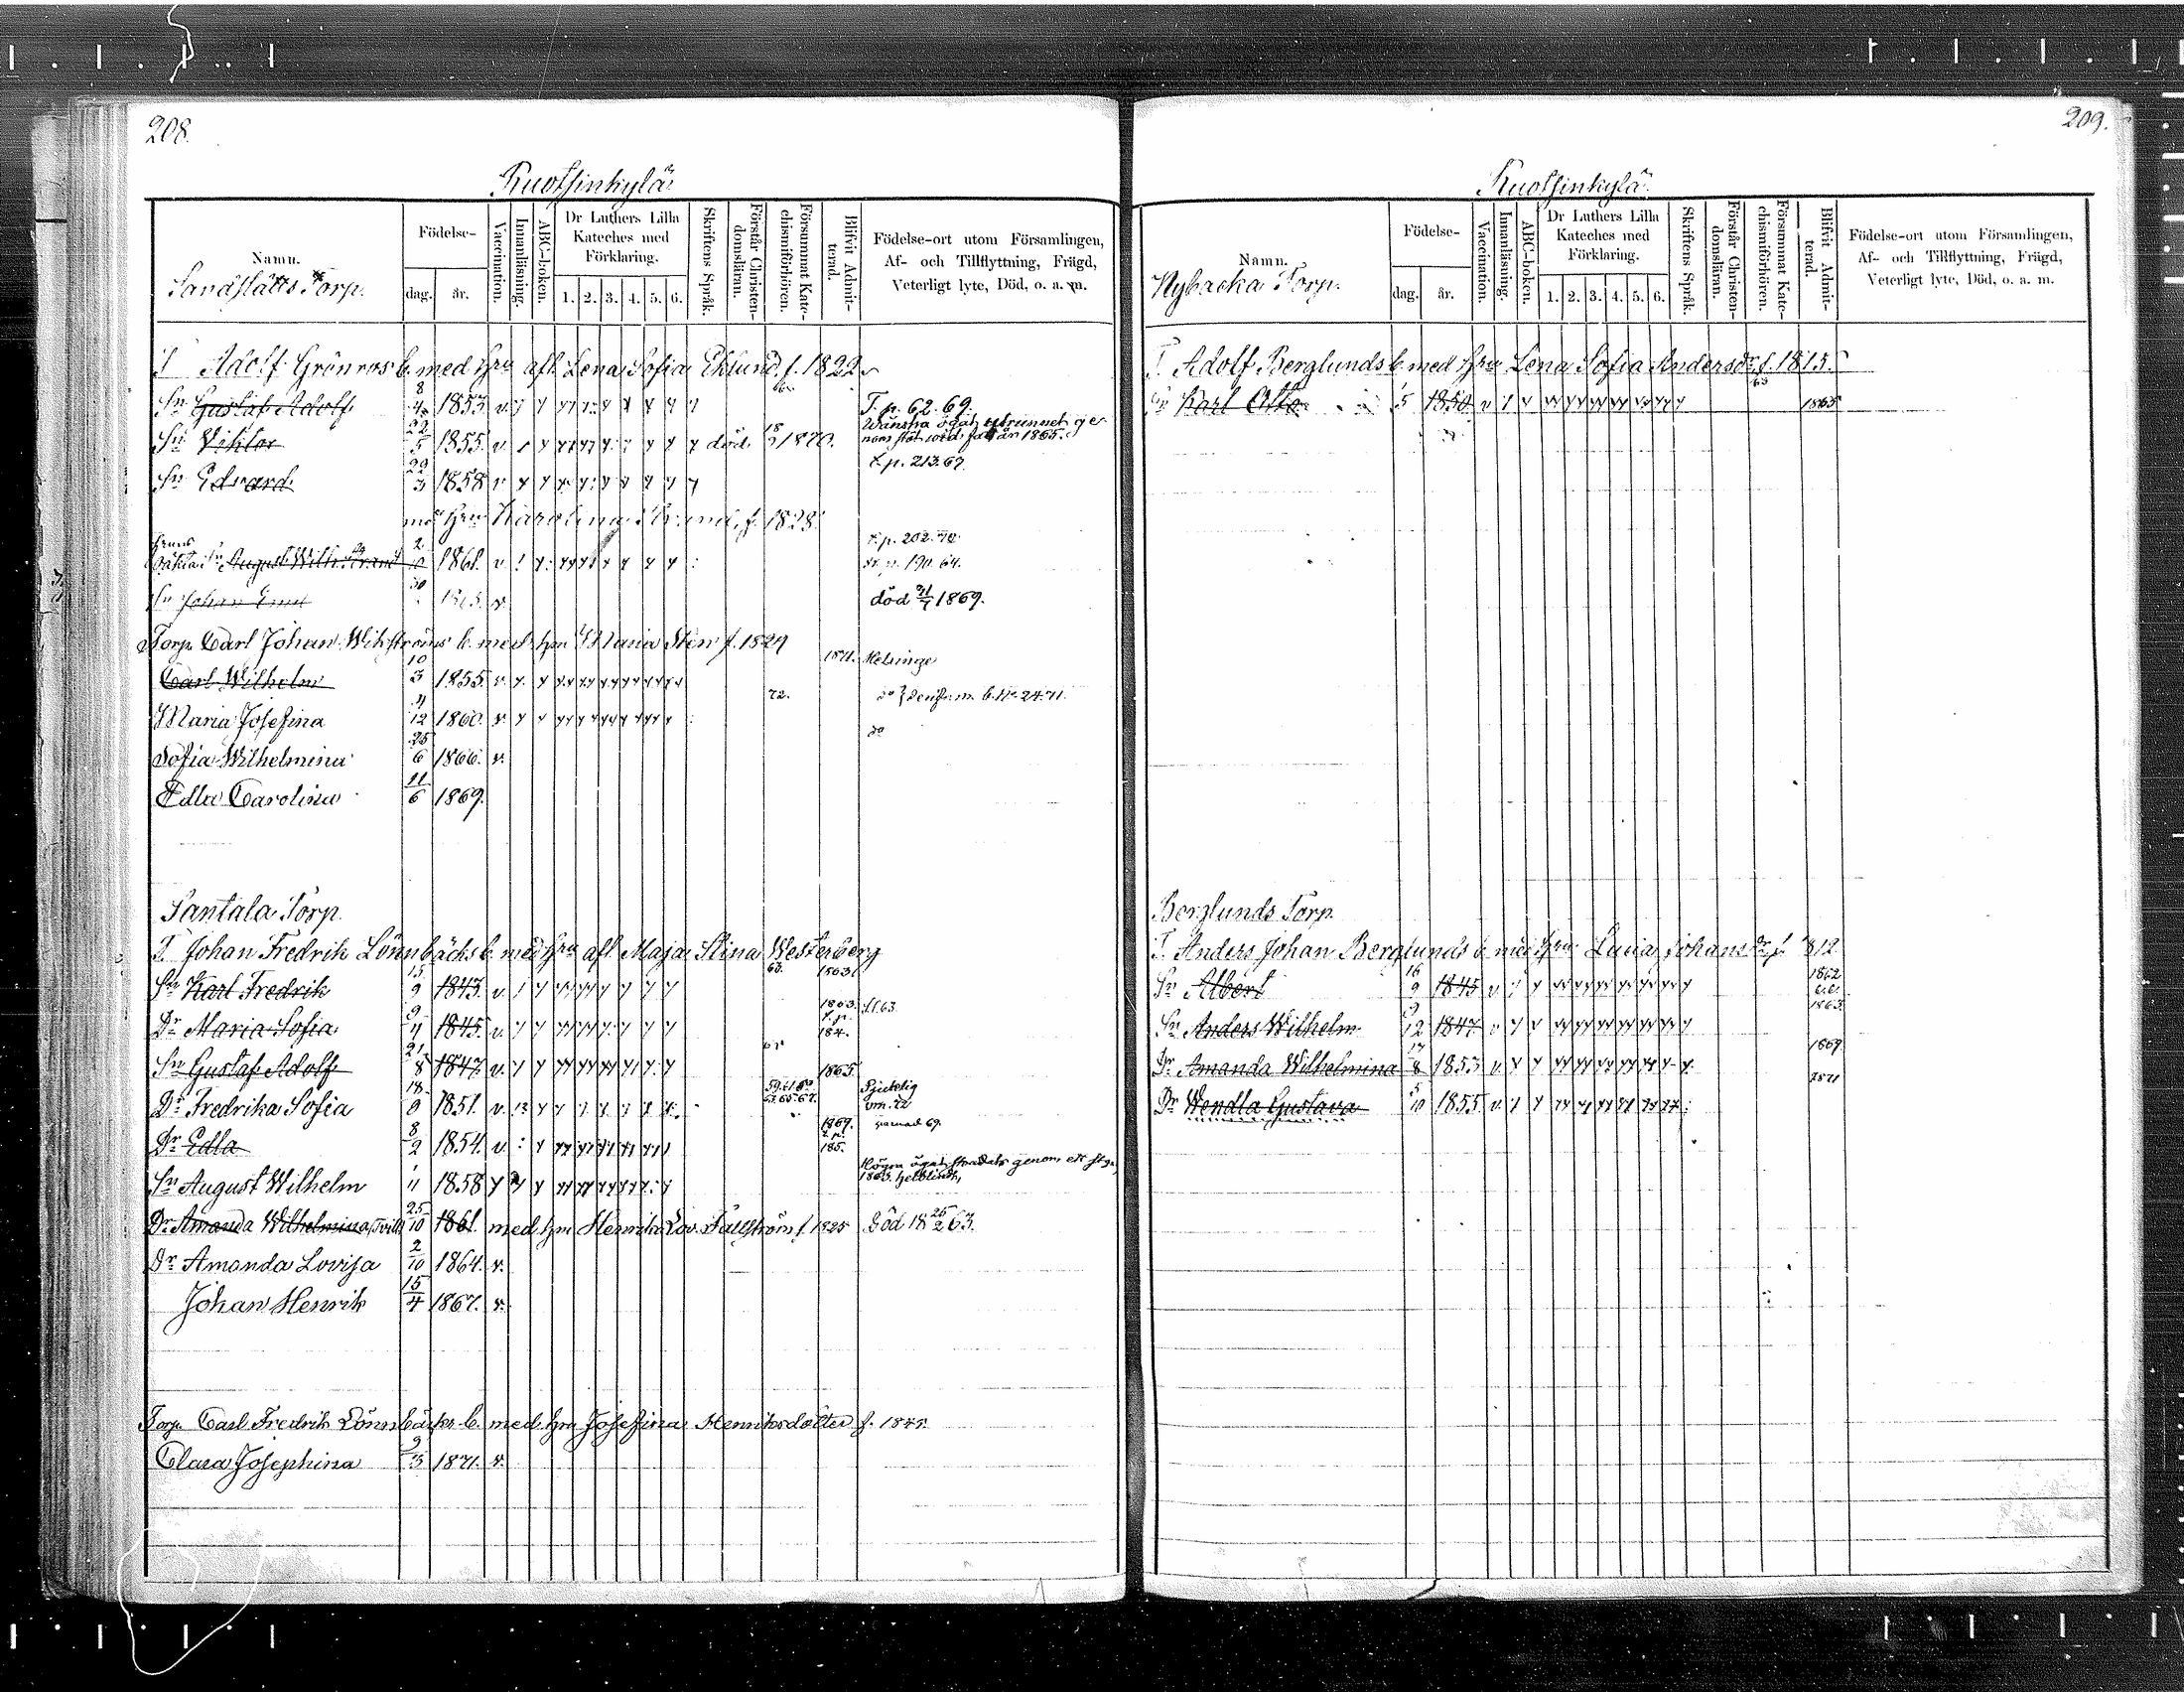 208.
Ruotsinkylä
Namn.
Födelse-
dag.
år.
Vaccination.
Innanläsning.
ABC-boken.
Dr Luthers Lilla
Kateches med
Förklaring.
1. 2. 3. 4. 5. 6.
Skriftens Språk.
Förstår Christen-
domsläran.
Försummat Kate-
chismiförhören.
Blifvit Admit-
terad.
Födelse-ort utom Församlingen,
Af- och Tillflyttning, Frägd,
Veterligt lyte, Död, o. a. m.
Sandslätts Torp.
T Adolf Grönroos b. med hru afl. Lena Sofia Eklund f. 1822
Sn Gustaf Adolf 8/4 1853 v. T. p. 62. 69.
Sn Viktor 22/5 1855 v. död 18 1870. Wänstra ögat utrunnet ge-
nom stöt wid fall år 1865.
Sn Edvard 29/3 1858 v T. p. 213. 69.
med hru Karolina Strand, f. 1828.
hruns oäkta sn August Wilh. Strand 2 1861. v. T. p. 202. 70.
p. 190. 64.
Sn Johan Emil 30 v. död 31/7 1869.
Torp. Carl Johan Wikströms b. med hru Maria Sten f. 1829
Carl Wilhelm 10/3 1855. v. 1871. Helsinge
Maria Josefina 4/12 1860. v. 72. do
Sofia Wilhelmina 25/6 1866. v. do
Edla Carolina 11/6 1869.
Santala Torp.
T. Johan Fredrik Lönnbächs b. med hru afl. Maja Stina Westerberg
Sn Karl Fredrik 15/9 1843. v. 63. 1863.
Dr Maria Sofia 9/4 1845. v. 1863. T. p. 184.
Sn Gustaf Adolf 21/8 1847. v. 1865.
Dr Fredrika Sofia 18/9 1851. v. Sjuklig
Dr Edla 8/2 1854. v. 1869. T. p. 185.
Sn August Wilhelm 1/11 1858 Högra ögat skadats genom ett styng
1863. helblind,
Dr Amanda Wilhelmina, Tvill. 25/10 1861. med hru Henrika Lov. Fällström f. 1825 död 18 26/2 63.
Dr Amanda Lovisa 2/10 1864. v.
Johan Henrik 15/4 1867. v.
Torp. Carl Fredrik Lönnbäcks b. med hru Josefina Henriksdotter f. 1845
Clara Josephina 9/3 1871. v.
209.
Ruotsinkylä.
Namn.
Födelse-
dag.
år.
Vaccination.
Innanläsning.
ABC-boken.
Dr Luthers Lilla
Kateches med
Förklaring.
1. 2. 3. 4. 5. 6.
Skriftens Språk.
Förstår Christen-
domsläran.
Försummat Kate-
chismiförhören.
Blifvit Admit-
terad.
Födelse-ort utom Församlingen,
Af- och Tillflyttning, Frägd,
Veterligt lyte, Död, o. a. m.
Nybacka Torp.
T. Adolf Berglunds b. med hru Lena Sofia Andersdr f. 1815.
Sn Karl Otto 5 1850 v 63 1865
Berglunds Torp.
T. Anders Johan Berglunds b. med hru Lucia Johansdr f. 1812.
Sn Albert 16/9 1845 v 1862
Sn Anders Wilhelm 9/12 1847 v 1863.
Dr Amanda Wilhelmina 17/8 1853 v. 1869
Dr Wendla Gustava 5/10 1855 v. 1871